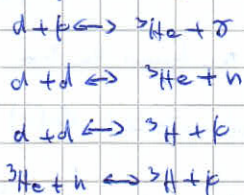 d + p ⟷ ³He + γ
d + d ⟷ ³He + n
d + d ⟷ ³H + p
³He + n ⟷ ³H + p